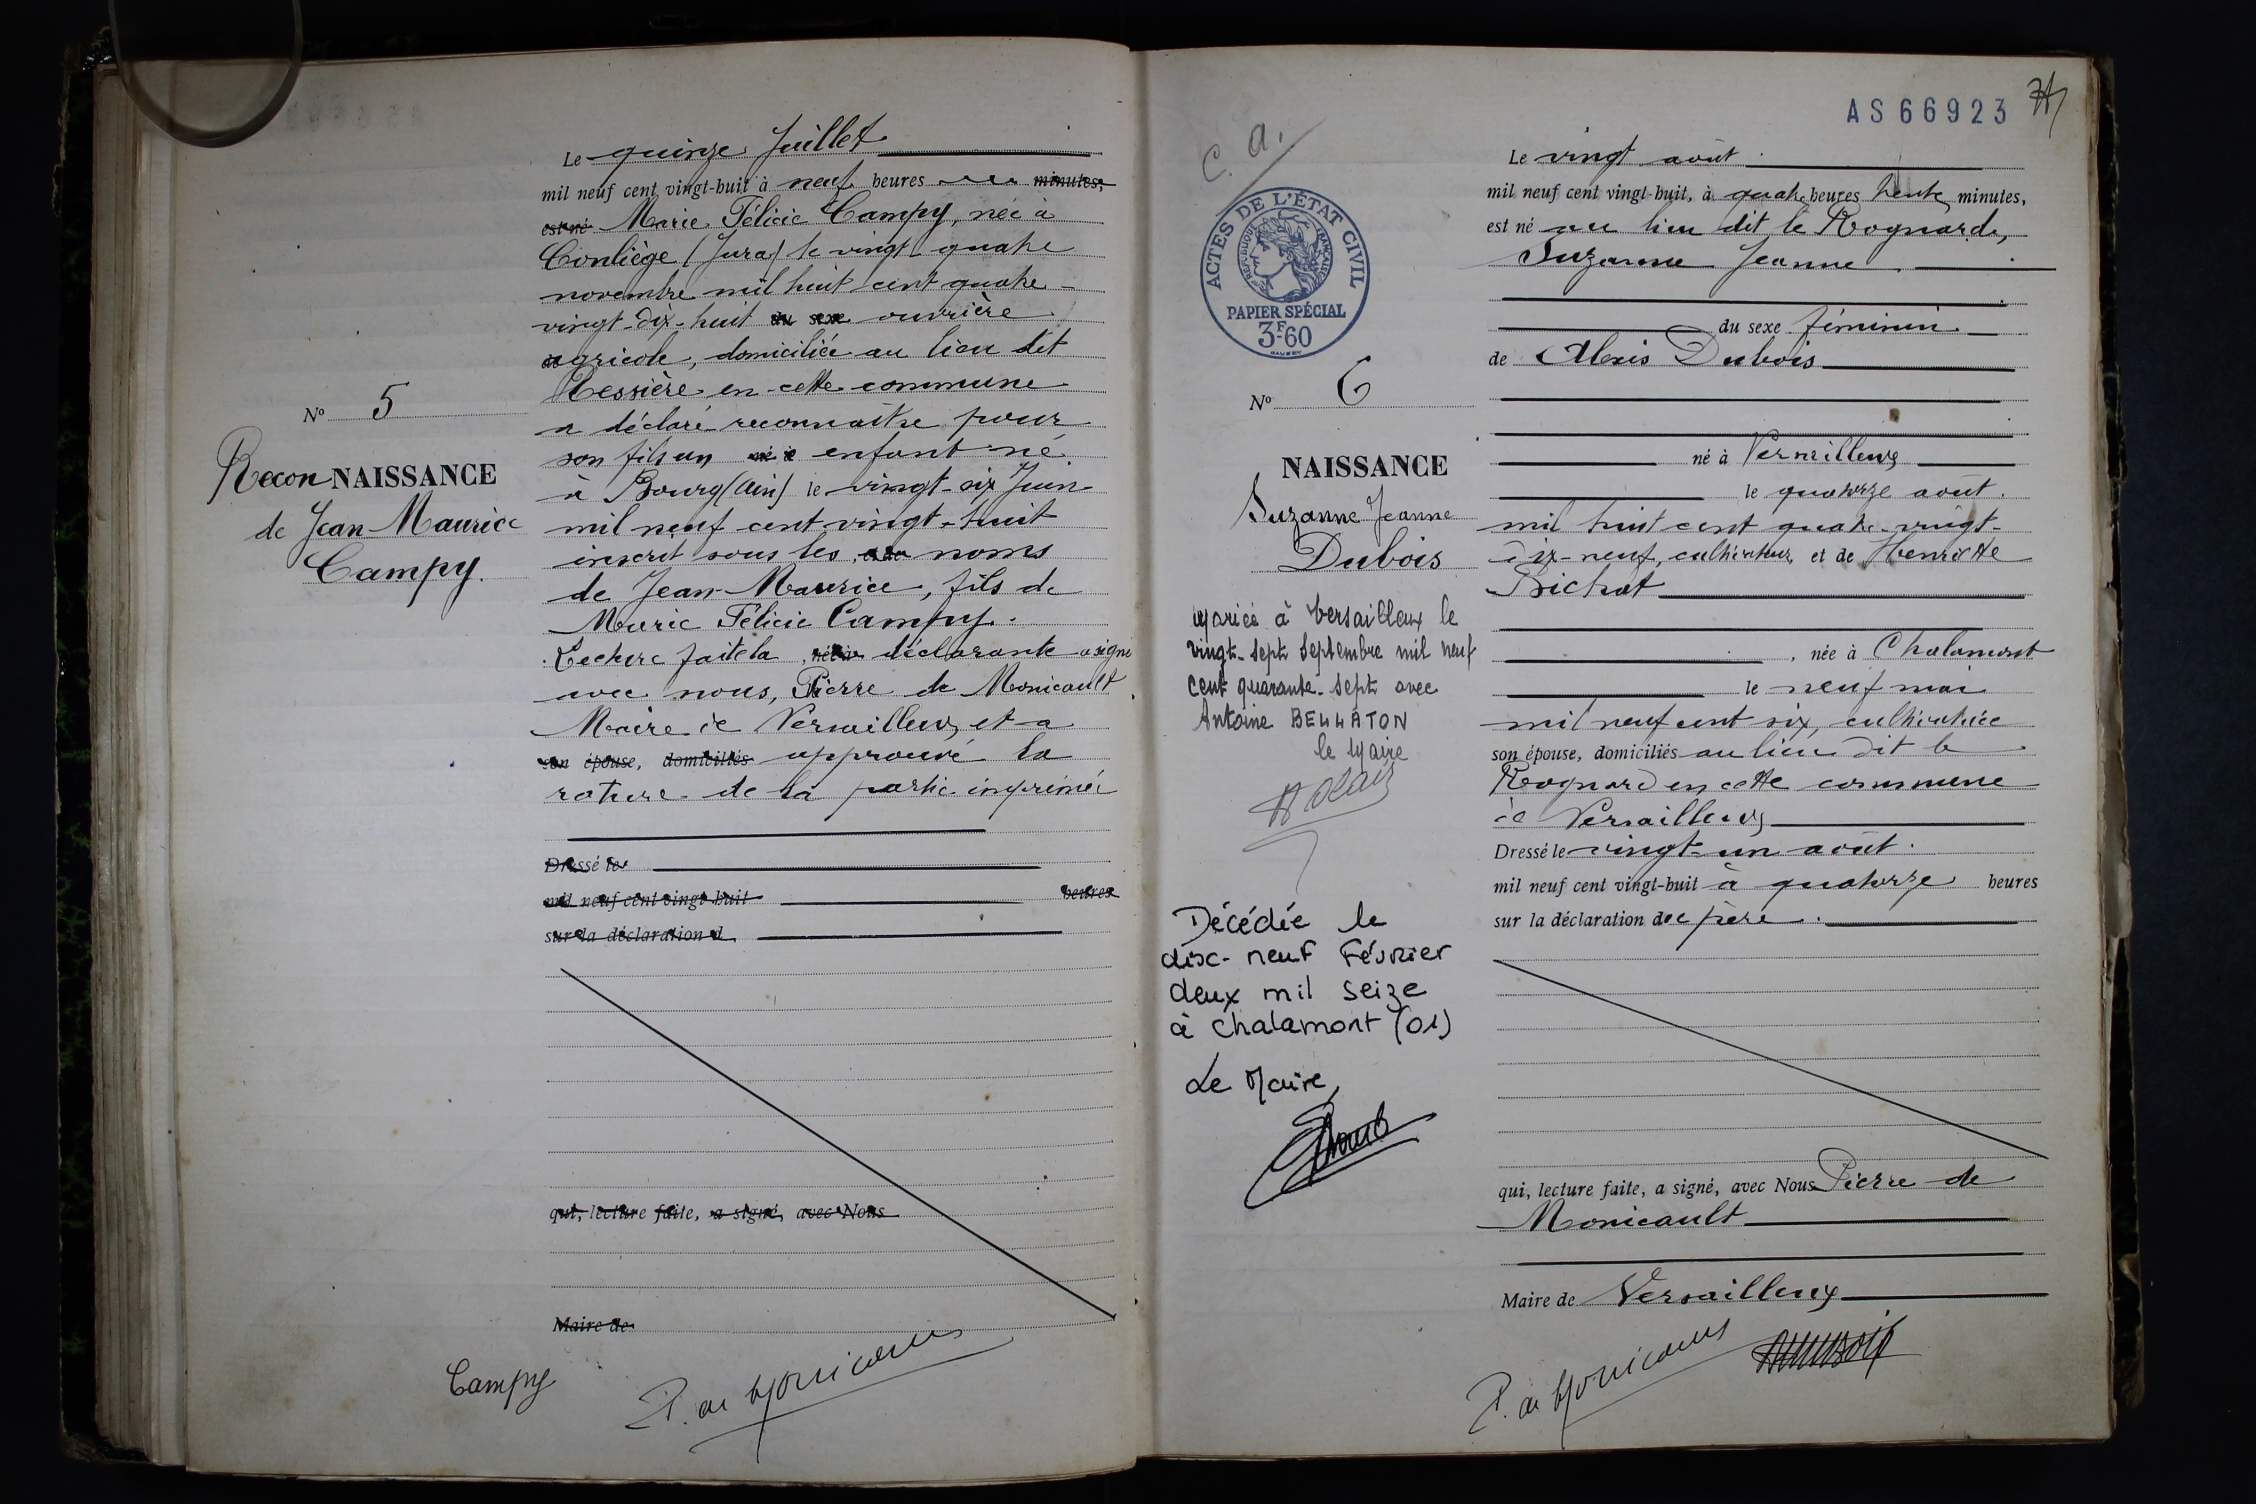 Le quinze Juillet
mil neuf cent vingt-huit à neuf heures minutes,
est né Marie Félicie Campy, née à
Conliège (Jura) le vingt quatre
novembre mil huit cent quatre-
vingt-dix-huit du sexe ouvrière
agricole, domiciliée au lieu dit
Bessière en cette commune
a déclaré reconnaître pour
son fils un né à enfant né
à Bourg (Ain) le vingt-six Juin
mil neuf cent vingt-huit
inscrit sous les noms
de Jean-Maurice, fils de
Marie Félicie Campy.
Lecture faite la née à déclarante a signé
avec nous, Pierre de Monicault
Maire de Versailleux, et a
son épouse, domiciliés approuvé la
rature de la partie imprimée
Dressé le
mil neuf cent vingt-huit heures
sur la déclaration d
qui, lecture faite, a signé, avec Nous
Maire de
Campy P. de Monicault
N° 5
Reconnaissance
de Jean-Maurice
Campy.
AS 66923
C. a.
ACTES DE L'ÉTAT CIVIL
RÉPUBLIQUE FRANÇAISE
PAPIER SPÉCIAL
3F60
N° 6
NAISSANCE
Suzanne Jeanne
Dubois
Mariée à Versailleux le
vingt-sept Septembre mil neuf
cent quarante-sept avec
Antoine BELLATON
le Maire
Décédée le
dix-neuf Février
deux mil seize
à Chalamont (01)
Le Maire,
Le vingt août
mil neuf cent vingt-huit, à quatre heures trente minutes,
est né au lieu dit le Rognard,
Suzanne Jeanne
du sexe féminin
de Alexis Dubois
né à Versailleux
le quatorze août
mil huit cent quatre-vingt-
dix-neuf, cultivateur, et de Henriette
Bichat
, née à Chalamont
le neuf mai
mil neuf cent six, cultivatrice
son épouse, domiciliés au lieu dit le
Rognard en cette commune
de Versailleux
Dressé le vingt-un août
mil neuf cent vingt-huit à quatorze heures
sur la déclaration du père.
qui, lecture faite, a signé, avec Nous Pierre de
Monicault
Maire de Versailleux
P. de Monicault